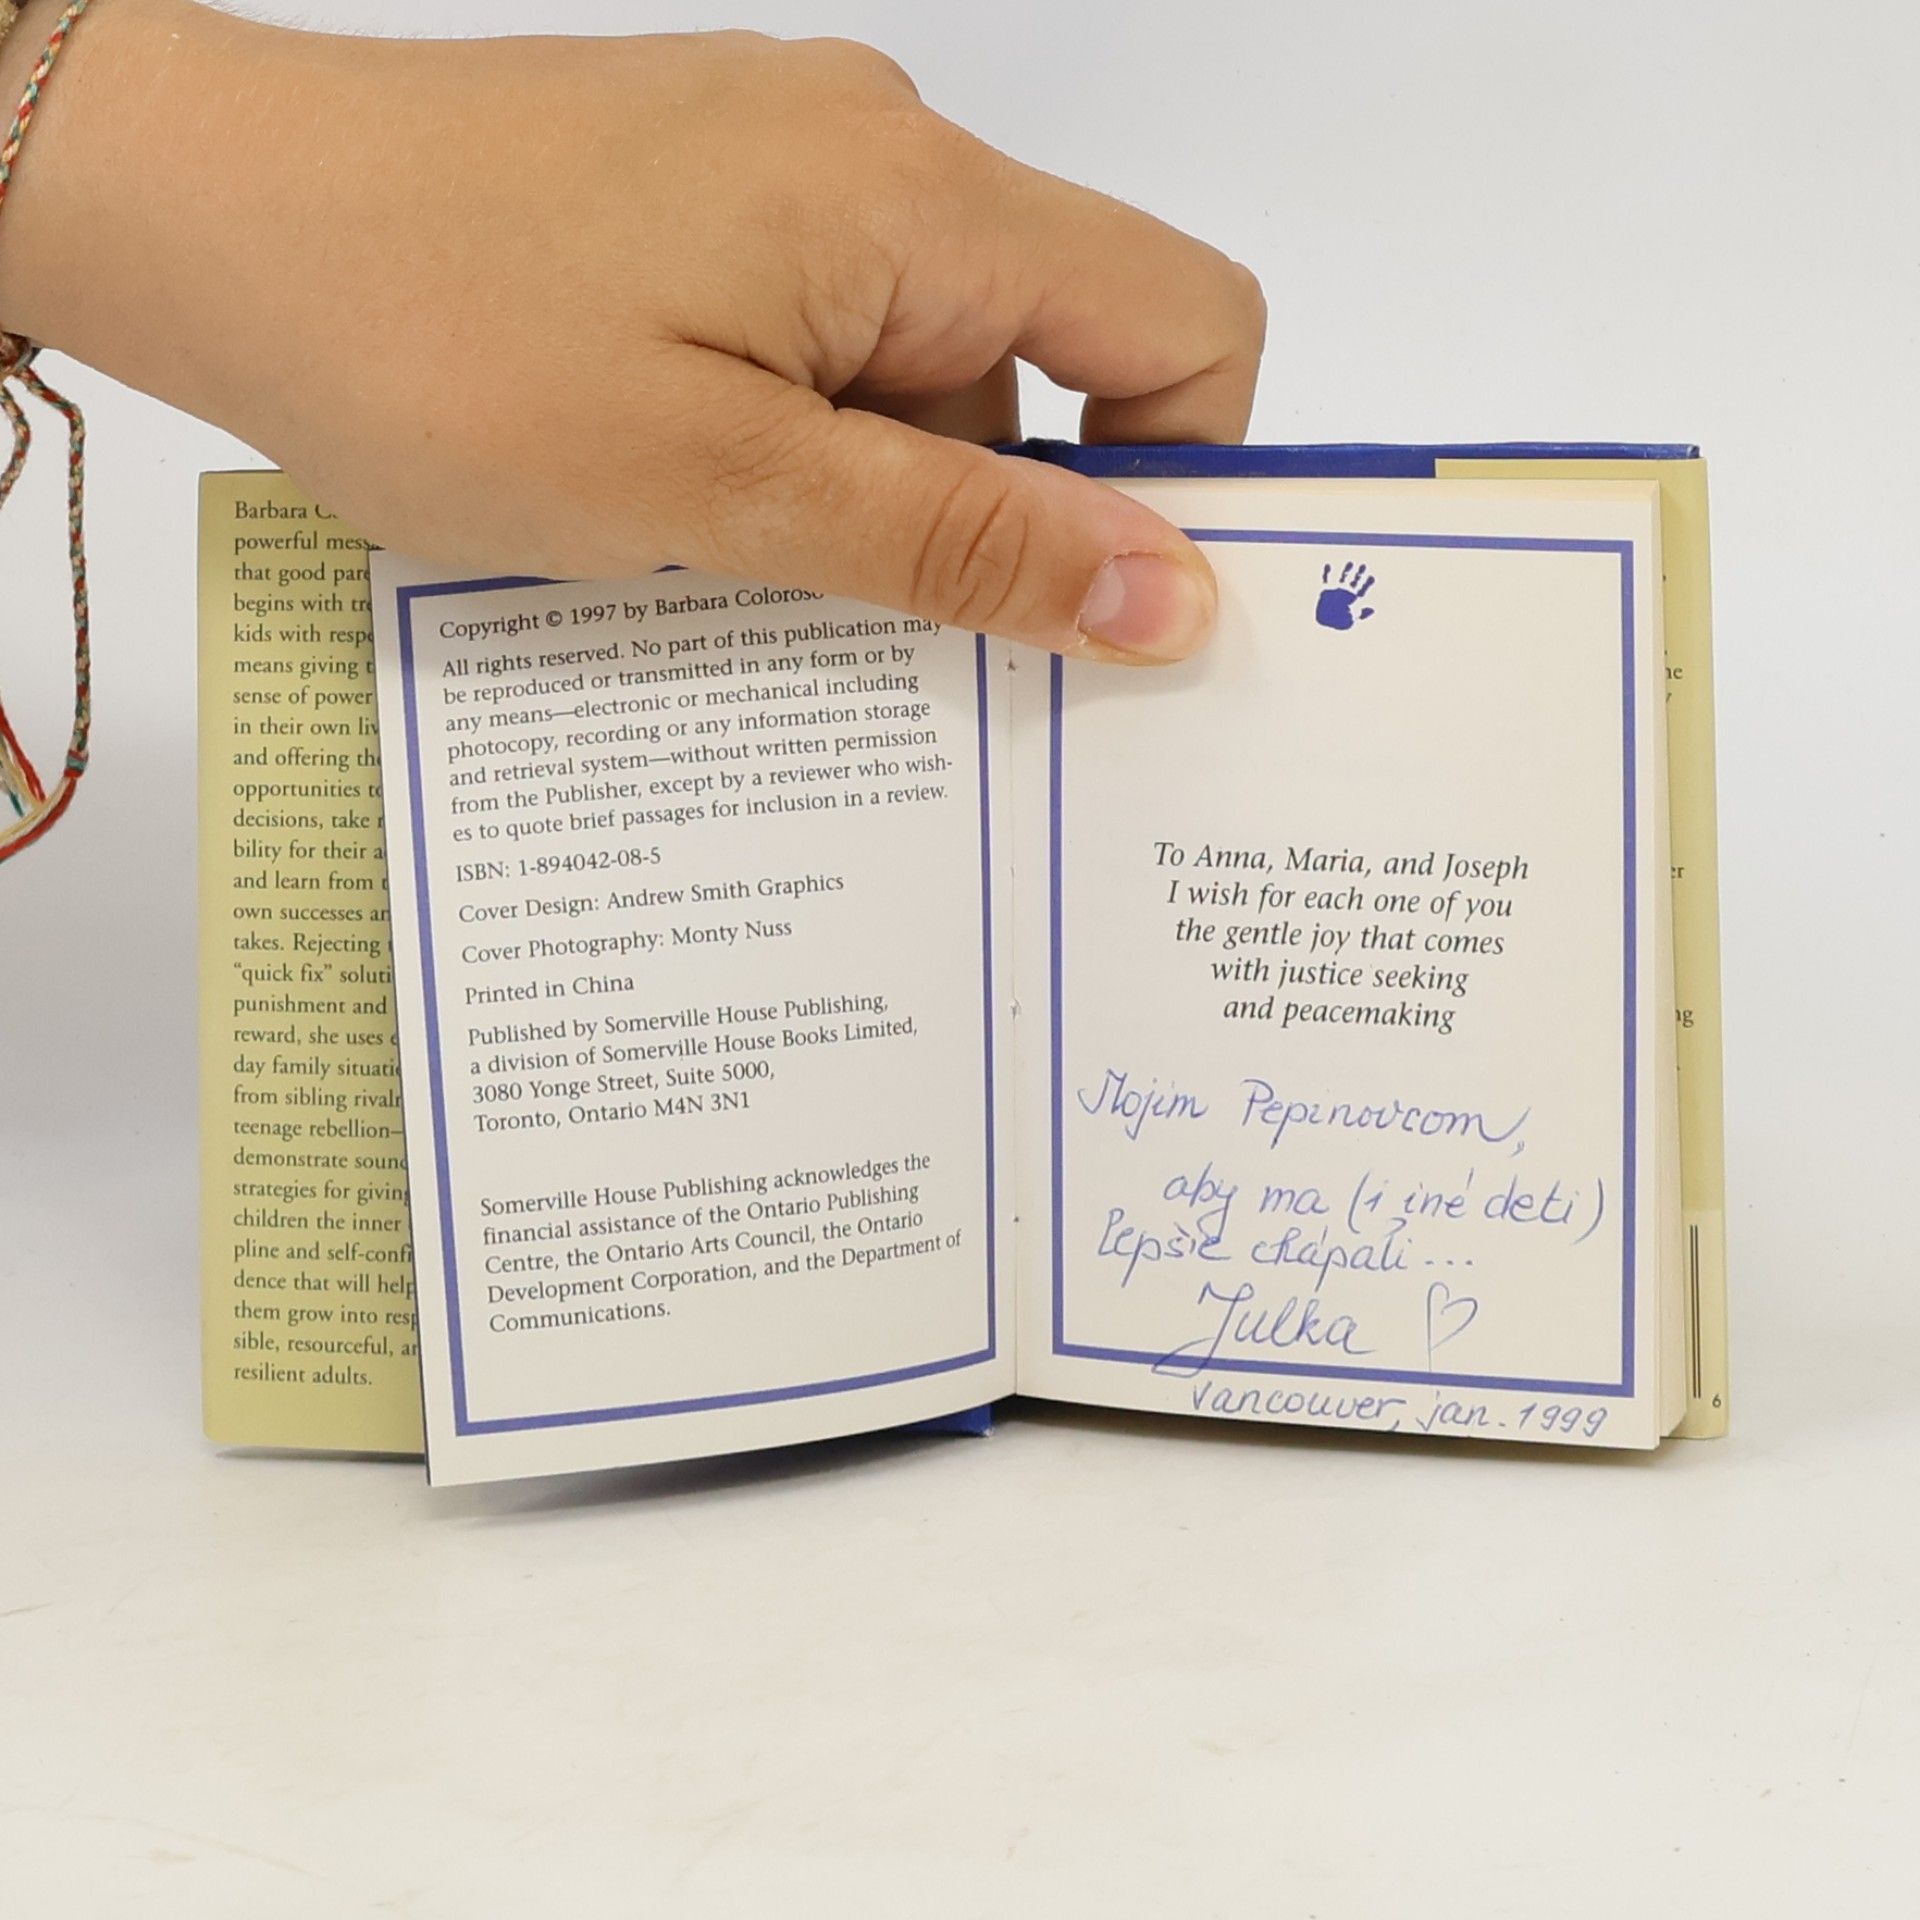 Barbara
powerful
that good
begins with
kids with
means giving
sense of power
in their own
and offering
opportunities
decisions, take
bility for their
and learn from
own successes
takes. Rejecting
“quick fix”
punishment and
reward, she uses
day family
from sibling
teenage rebellion—
demonstrate
strategies for
children the inner
pline and
dence that will
them grow into
sible, resourceful,
resilient adults.
Copyright © 1997 by Barbara
All rights reserved. No part of this publication may
be reproduced or transmitted in any form or by
any means—electronic or mechanical including
photocopy, recording or any information storage
and retrieval system—without written permission
from the Publisher, except by a reviewer who wish-
es to quote brief passages for inclusion in a review.
ISBN: 1-894042-08-5
Cover Design: Andrew Smith Graphics
Cover Photography: Monty Nuss
Printed in China
Published by Somerville House Publishing,
a division of Somerville House Books Limited,
3080 Yonge Street, Suite 5000,
Toronto, Ontario M4N 3N1
Somerville House Publishing acknowledges the
financial assistance of the Ontario Publishing
Centre, the Ontario Arts Council, the Ontario
Development Corporation, and the Department of
Communications.
To Anna, Maria, and Joseph
I wish for each one of you
the gentle joy that comes
with justice seeking
and peacemaking
Mojim Pepinovcom,
aby ma (i iné deti)
lepšie chápali...
Julka
Vancouver, jan. 1999
6